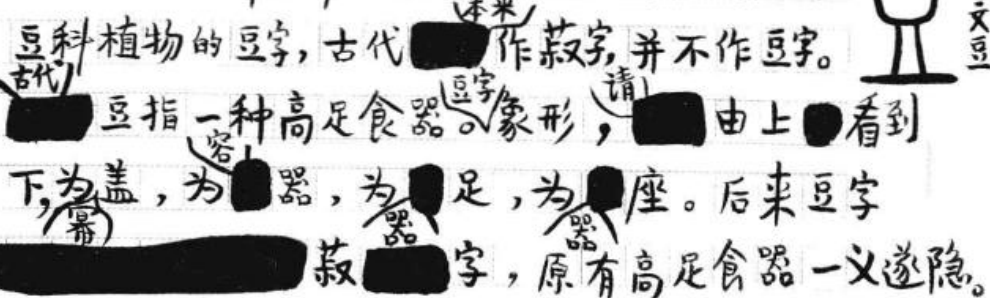 豆科植物的豆字,古代本来作菽字,并不作豆字。
古代豆指一种高足食器。豆字象形,请由上看到
下,为幂盖,为容器,为器足,为器座。后来豆字
菽字,原有高足食器一义遂隐。
文豆